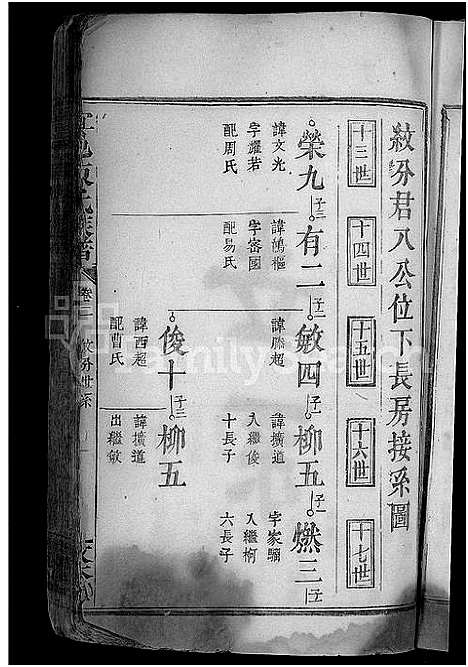 紋分君八公位下長房接系圖
十三世
十四世
十五世
十六世
十七世
榮九
子二
有二
子二
敏四
子一
柳五
子一
燃三
諱文光
字耀若
配周氏
諱鴻樞
字密國
配易氏
諱勝超
諱擴道
入繼俊
十長子
字家騮
入繼柯
六長子
俊十
子二
柳五
諱西超
配曹氏
諱擴道
出繼敏
卷二
紋分世系